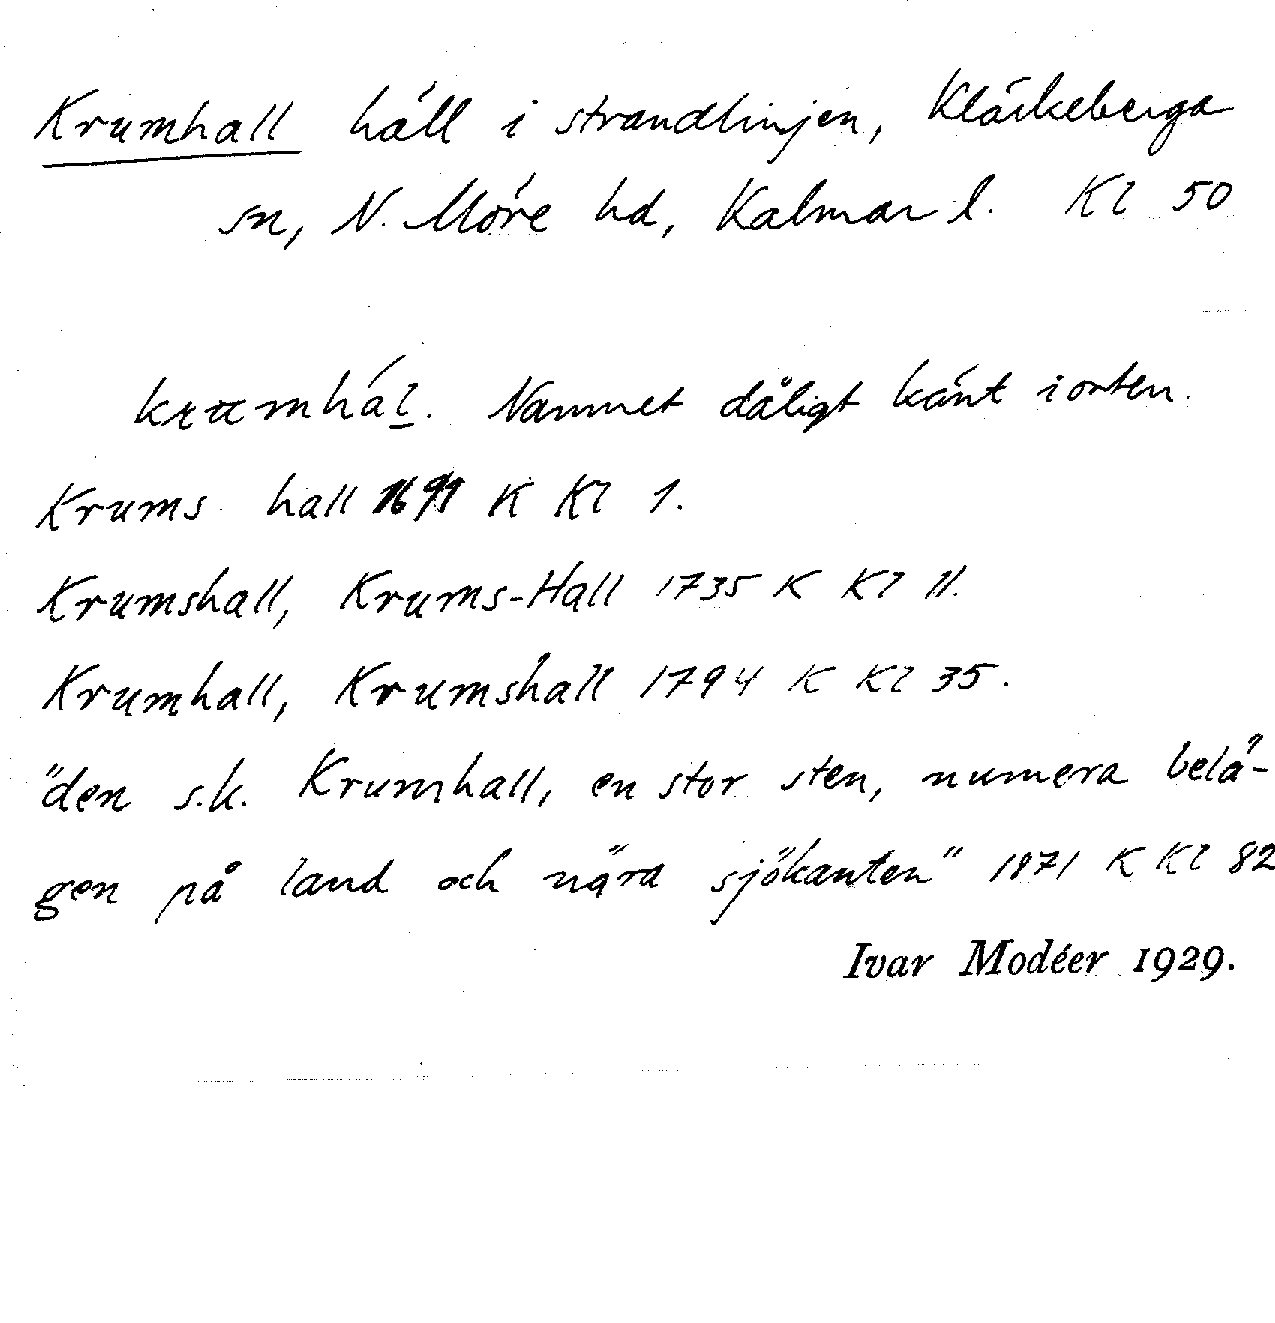 Krumhall häll i strandlinjen, Kläckeberga
sn, N. Möre hd, Kalmar l. Kl 50
Namnet dåligt känt i orten.
Krums hall K Kl 1.
Krumshall, Krums-Hall 1735 K Kl 11.
Krumhall, Krumshall 1794 K Kl 35.
"den s.k. Krumhall, en stor sten, numera belä-
gen på land och nära sjökanten" 1871 K Kl 82
Ivar Modéer 1929.